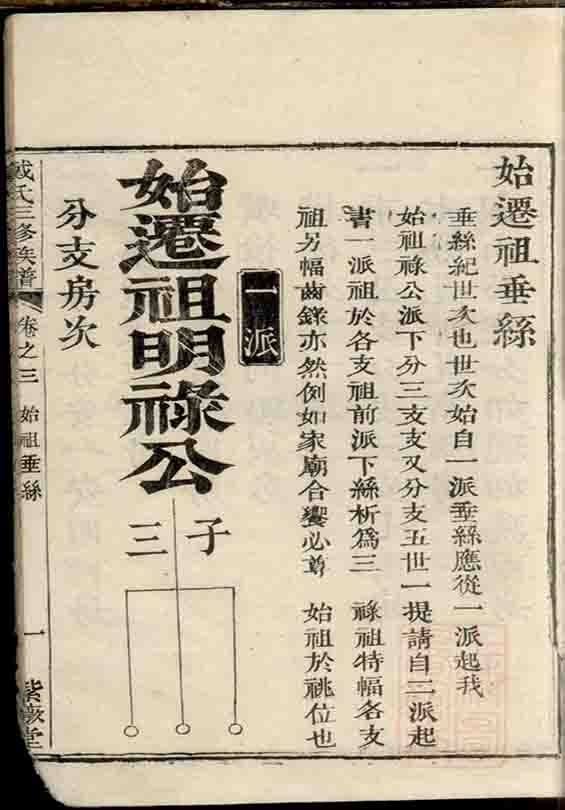 始遷祖垂絲
垂絲紀世次也世次始自一派垂絲應從一派起我
始祖祿公派下分三支支又分支五世一提請自二派起
書一派祖於各支祖前派下絲析爲三 祿祖特幅各支
祖另幅齒錄亦然例如家廟合饗必尊 始祖於祧位也
一派
始遷祖明祿公
子三
分支房次
戚氏三修族譜 卷之三 始祖垂絲 一 堂